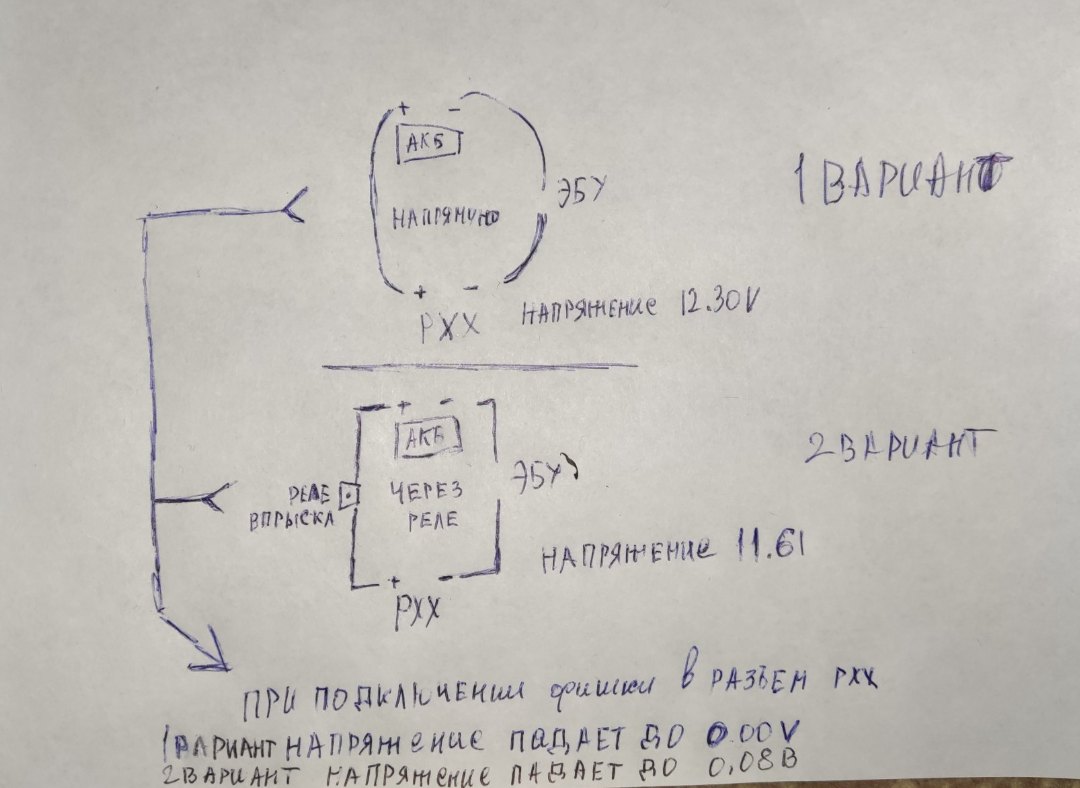 + -
АКБ
ЭБУ
1 ВАРИАНТ
НАПРЯМУЮ
+ -
РХХ
НАПРЯЖЕНИЕ 12.30V
+ -
АКБ
2 ВАРИАНТ
ЭБУ
РЕЛЕ
ВПРЫСКА
ЧЕРЕЗ
РЕЛЕ
НАПРЯЖЕНИЕ 11.61
+ -
РХХ
ПРИ ПОДКЛЮЧЕНИИ фишки В РАЗЪЕМ РХХ
1 ВАРИАНТ НАПРЯЖЕНИЕ ПАДАЕТ ДО 0.00V
2 ВАРИАНТ НАПРЯЖЕНИЕ ПАДАЕТ ДО 0,08В